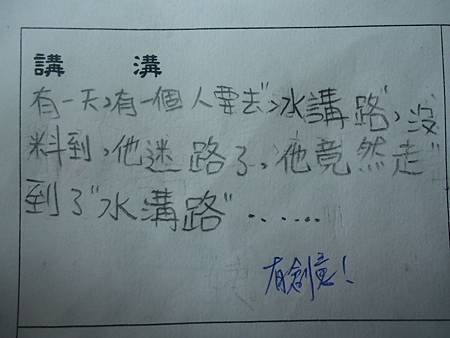 講 溝
有一天,有一個人要去",水講路",沒
料到,他迷路了,他竟然走"
到了"水溝路"......
有創意!